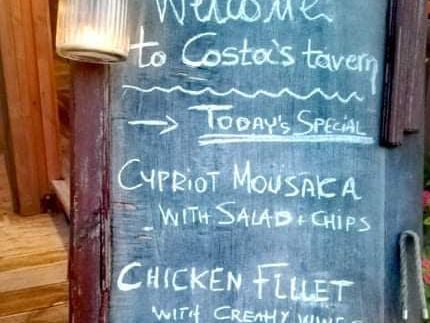 Welcome
to Costa's tavern
→ TODAY'S SPECIAL
CYPRIOT MOUSAKA
WITH SALAD + CHIPS
CHICKEN FILLET
WITH CREAMY WINE